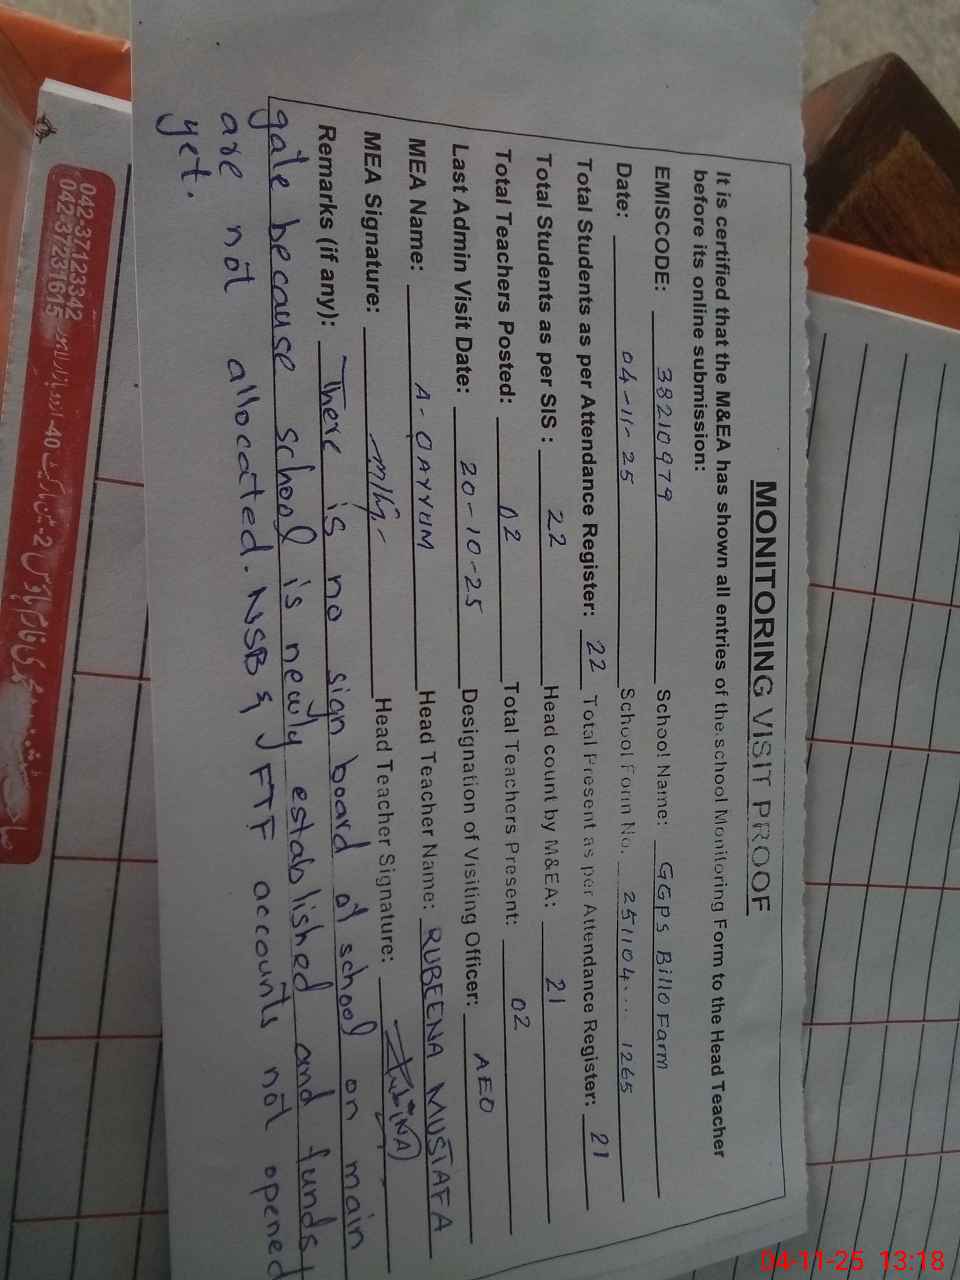 MONITORING VISIT PROOF
It is certified that the M&EA has shown all entries of the school Monitoring Form to the Head Teacher
before its online submission:
EMISCODE: 38210979 School Name: GGPS Billo Farm
Date: 04-11-25 School Form No. 251104... 1265
Total Students as per Attendance Register: 22 Total Present as per Attendance Register: 21
Total Students as per SIS : 22 Head count by M&EA: 21
Total Teachers Posted: 02 Total Teachers Present: 02
Last Admin Visit Date: 20-10-25 Designation of Visiting Officer: AEO
MEA Name: A-QAYYUM Head Teacher Name: RUBEENA MUSTAFA
MEA Signature: Head Teacher Signature:
Remarks (if any): There is no sign board of school on main
gate because school is newly established and funds
are not allocated. NSB & FTF accounts not opened
yet.
042-37123342
042-37231615
04-11-25 13:18